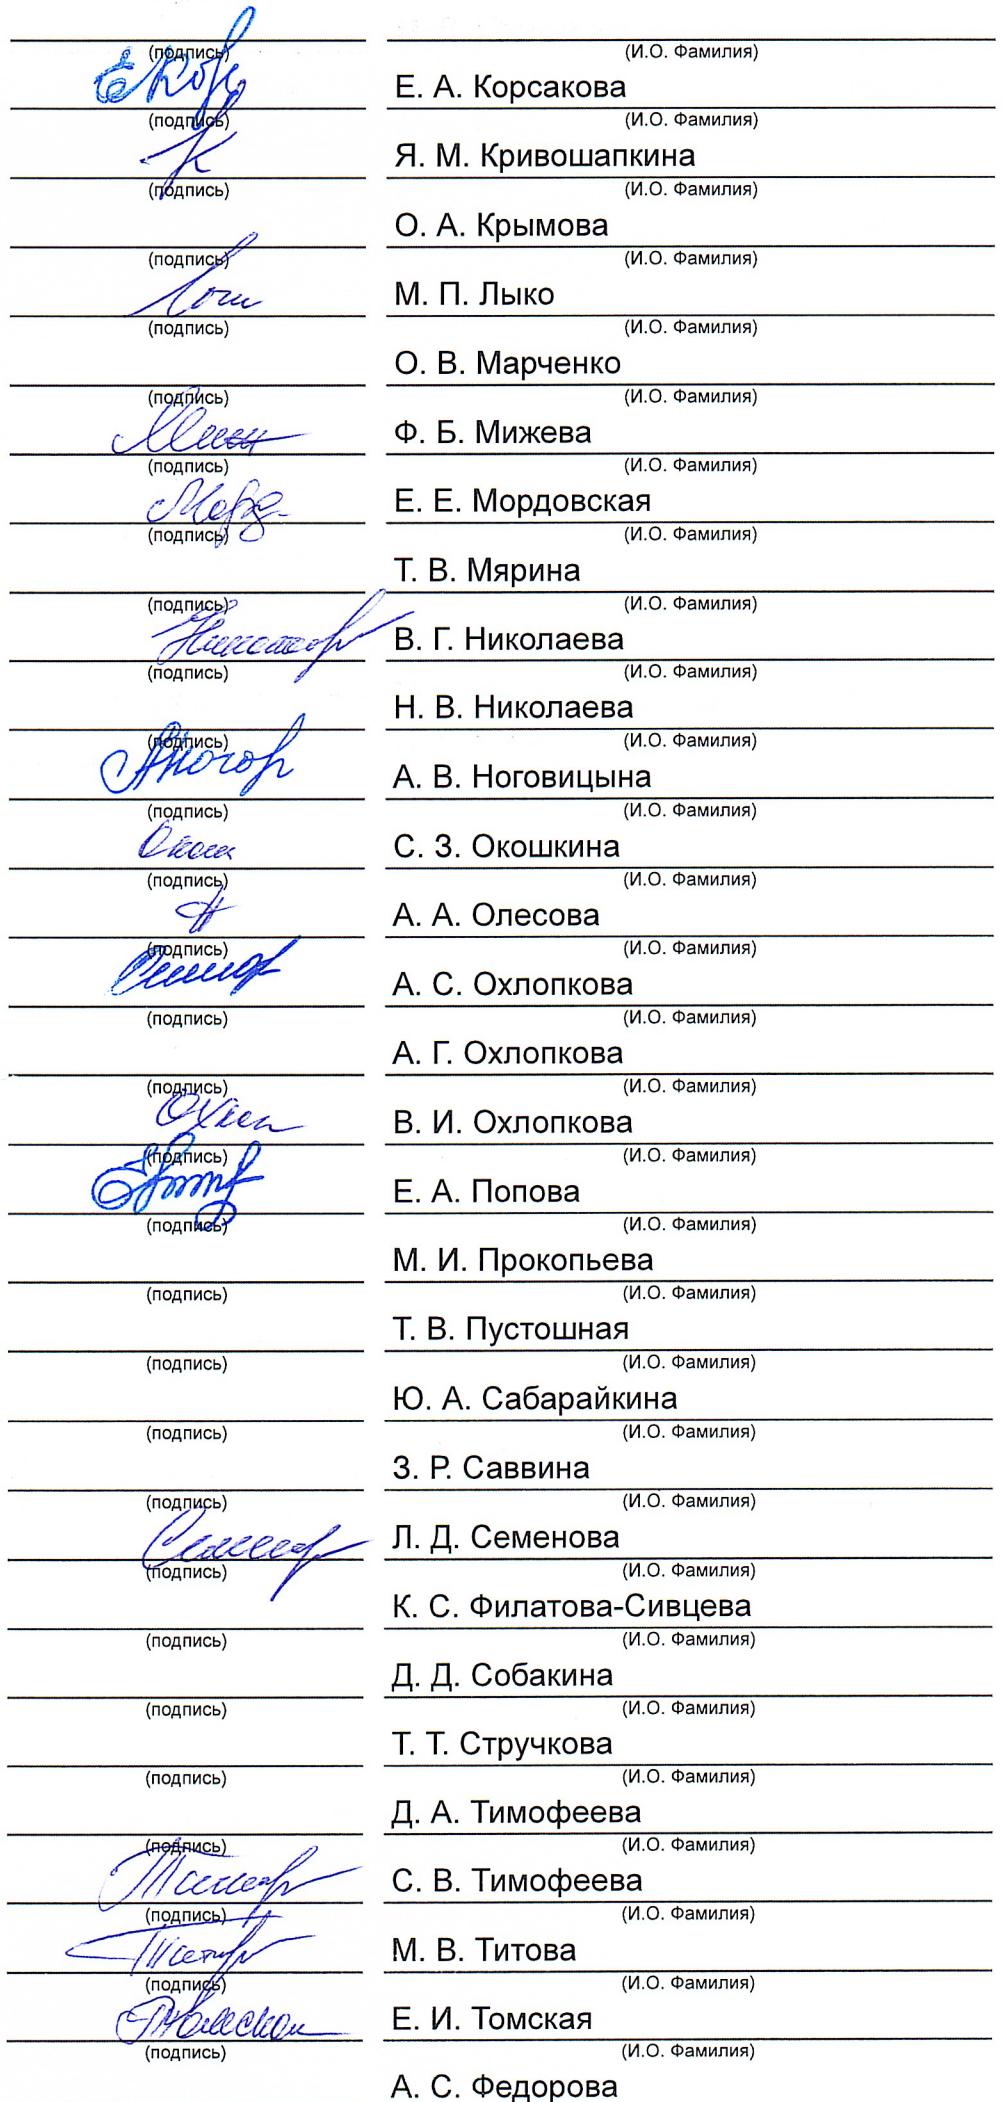 (подпись) (И.О. Фамилия)
Е. А. Корсакова
(подпись) (И.О. Фамилия)
Я. М. Кривошапкина
(подпись) (И.О. Фамилия)
О. А. Крымова
(подпись) (И.О. Фамилия)
М. П. Лыко
(подпись) (И.О. Фамилия)
О. В. Марченко
(подпись) (И.О. Фамилия)
Ф. Б. Мижева
(подпись) (И.О. Фамилия)
Е. Е. Мордовская
(подпись) (И.О. Фамилия)
Т. В. Мярина
(подпись) (И.О. Фамилия)
В. Г. Николаева
(подпись) (И.О. Фамилия)
Н. В. Николаева
(подпись) (И.О. Фамилия)
А. В. Ноговицына
(подпись) (И.О. Фамилия)
С. З. Окошкина
(подпись) (И.О. Фамилия)
А. А. Олесова
(подпись) (И.О. Фамилия)
А. С. Охлопкова
(подпись) (И.О. Фамилия)
А. Г. Охлопкова
(подпись) (И.О. Фамилия)
В. И. Охлопкова
(подпись) (И.О. Фамилия)
Е. А. Попова
(подпись) (И.О. Фамилия)
М. И. Прокопьева
(подпись) (И.О. Фамилия)
Т. В. Пустошная
(подпись) (И.О. Фамилия)
Ю. А. Сабарайкина
(подпись) (И.О. Фамилия)
З. Р. Саввина
(подпись) (И.О. Фамилия)
Л. Д. Семенова
(подпись) (И.О. Фамилия)
К. С. Филатова-Сивцева
(подпись) (И.О. Фамилия)
Д. Д. Собакина
(подпись) (И.О. Фамилия)
Т. Т. Стручкова
(подпись) (И.О. Фамилия)
Д. А. Тимофеева
(подпись) (И.О. Фамилия)
С. В. Тимофеева
(подпись) (И.О. Фамилия)
М. В. Титова
(подпись) (И.О. Фамилия)
Е. И. Томская
(подпись) (И.О. Фамилия)
А. С. Федорова